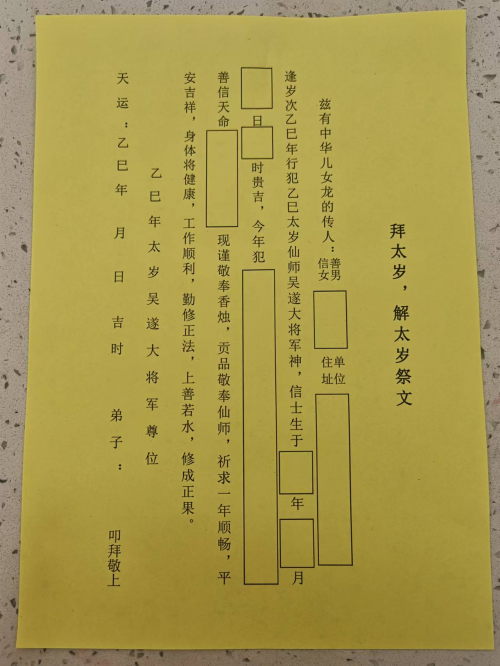 拜太岁，解太岁祭文
兹有中华儿女龙的传人：善男信女 单位住址
逢岁次乙巳年行犯乙巳太岁仙师吴遂大将军神，信士生于 年 月
日 时贵吉，今年犯
善信天命 现谨敬奉香烛，贡品敬奉仙师，祈求一年顺畅，平
安吉祥，身体将健康，工作顺利，勤修正法，上善若水，修成正果。
乙巳年太岁吴遂大将军尊位
天运：乙巳年 月 日 吉时 弟子： 叩拜敬上